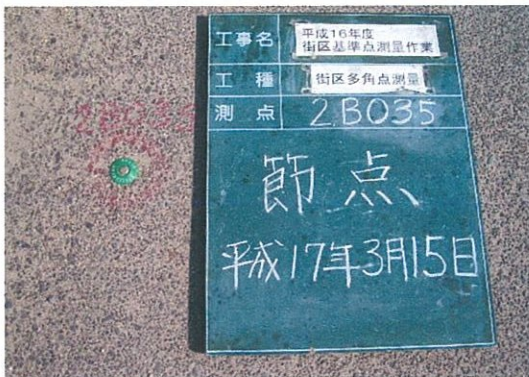 工事名 平成16年度
街区基準点測量作業
工種 街区多角点測量
測点 2B035
節点
平成17年3月15日